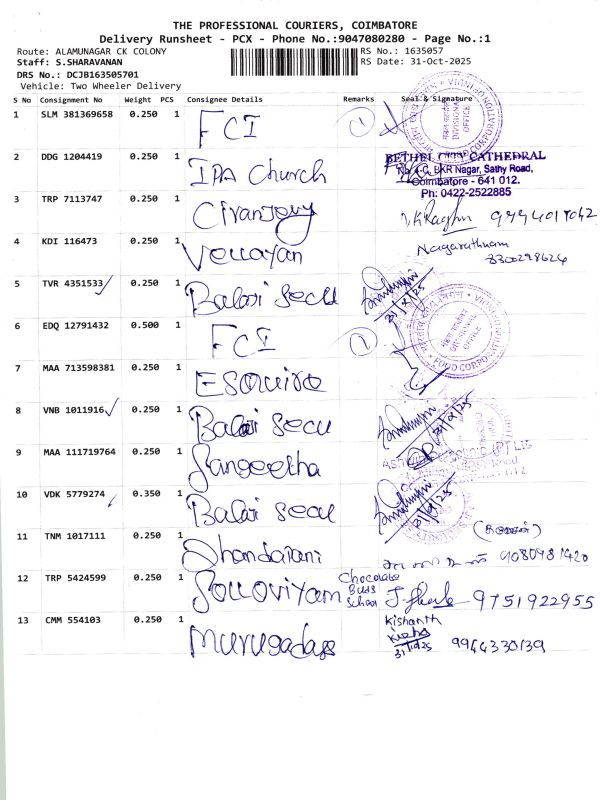 THE PROFESSIONAL COURIERS, COIMBATORE
Delivery Runsheet - PCX - Phone No.:9047080280 - Page No.:1
Route: ALAMUNAGAR CK COLONY RS No.: 1635057
Staff: S.SHARAVANAN RS Date: 31-Oct-2025
DRS No.: DCJB163505701
Vehicle: Two Wheeler Delivery
S No Consignment No Weight PCS Consignee Details Remarks Seal & Signature
1 SLM 381369658 0.250 1 FCI 1
DIVISIONAL OFFICE
2 DDG 1204419 0.250 1 IPA Church
BETHEL CATHEDRAL
BKR Nagar, Sathy Road,
Coimbatore - 641 012.
Ph: 0422-2522885
3 TRP 7113747 0.250 1
4 KDI 116473 0.250 1 Vellayan Nagarathnam
8300298624
5 TVR 4351533 0.250 1 Balaji Secu
6 EDQ 12791432 0.500 1 FCI 2
FOOD CORPORATION
7 MAA 713598381 0.250 1 Esquire
8 VNB 1011916 0.250 1 Balaji Secu
9 MAA 111719764 0.250 1 Sangeetha
10 VDK 5779274 0.350 1 Balaji Secu
11 TNM 1017111 0.250 1 9080981420
12 TRP 5424599 0.250 1 Chocolate Buds School 9751922955
13 CMM 554103 0.250 1 Murugadass Kishanth
31/10/25 9944330139